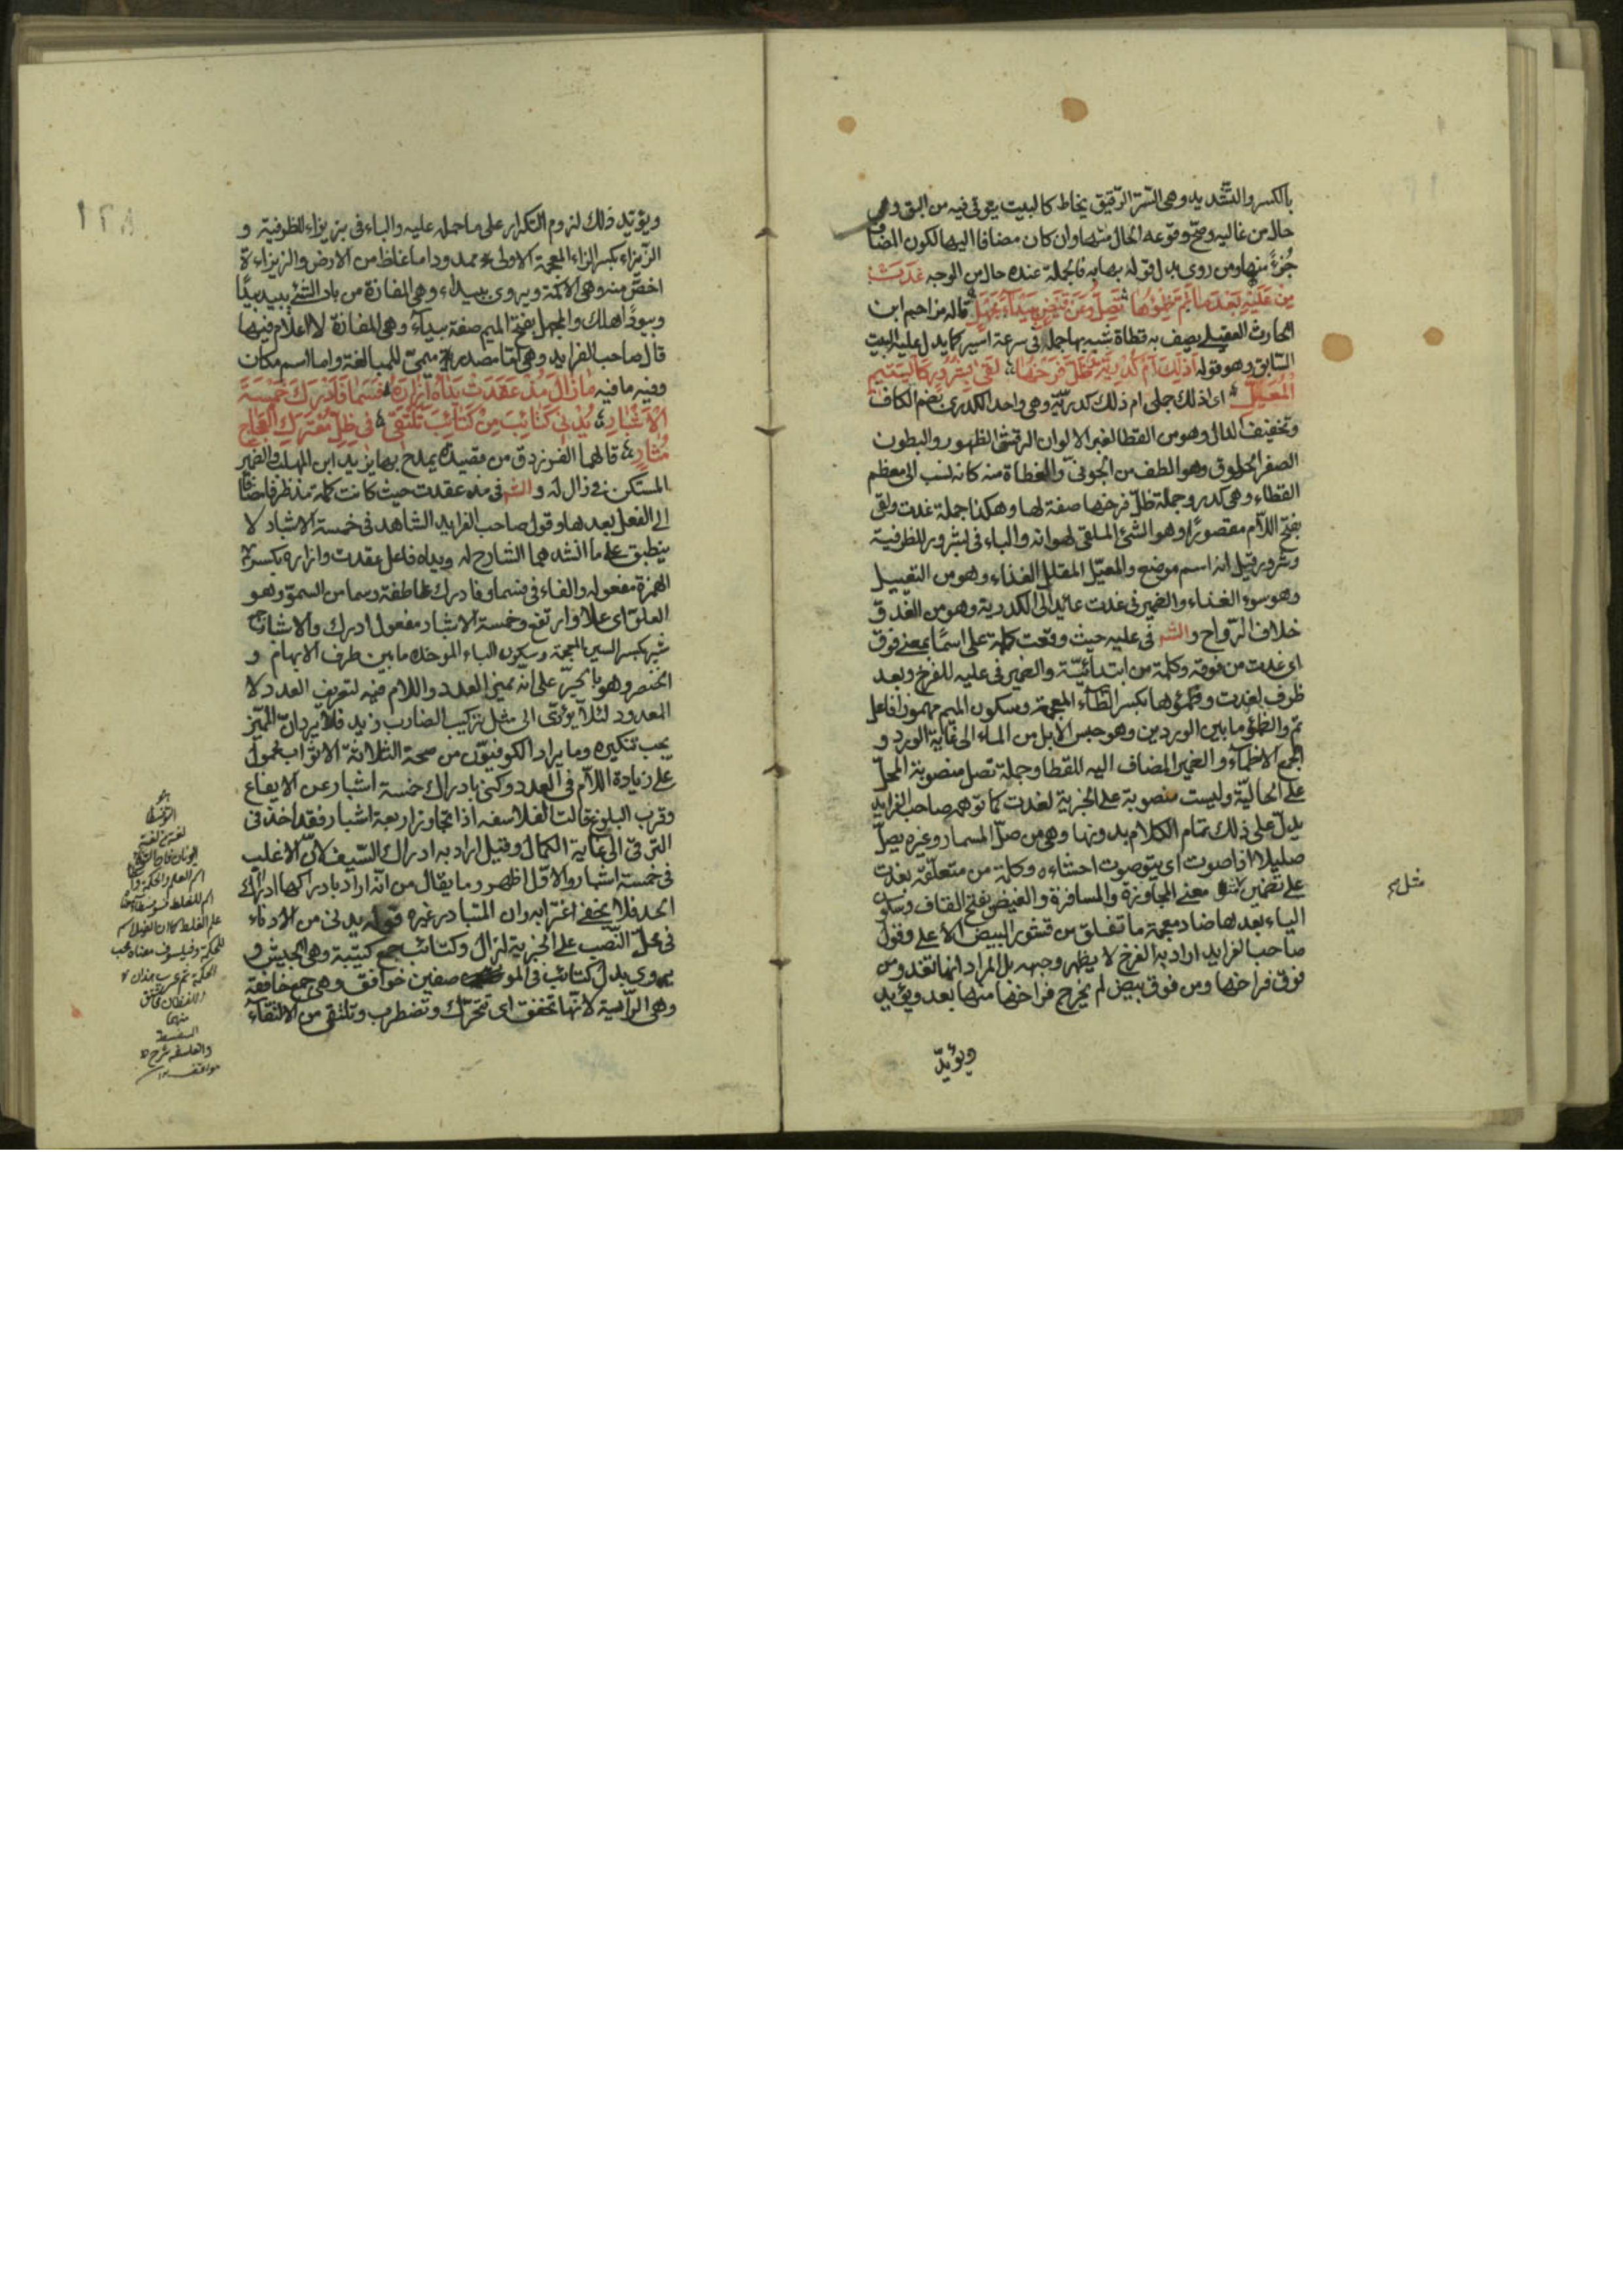 بالكسر والتشديد وهى الستر الرقيق يخاط كالبيت يتوقى فيه من البق وهى
حال من غاليه وصح وقوعه الحال منها وان كان مضافا اليها لكون المضاف
جزءً منها ومن روى بدل قوله بها به فالجملة عنده حال من الوجه غَدَتْ
مِنْ عَلَيْهِ بَعْدَمَا تَمَّ ظِمْؤُهَا تَصِلُّ وَعَنْ قَيْضٍ بِبَيْدَاءَ مَجْهَلِ قاله مزاحم ابن
الحارث العقيلى يصف به قطاة شبه بها جمله فى سرعة السير كما يدل عليه البيت
السابق وهو قوله اَذٰلِكَ اَمْ كُدْرِيَّةٌ ظَلَّ فَرْخُهَا لَقًى بِشَرُورٰى كَالْيَتِيمِ
الْمُعَيَّلِ اى اذلك جملى ام ذلك كدريّة وهى واحد الكدرى بضم الكاف
وتخفيف الدال وهو من القطا الغبر الالوان الرقش الظهور والبطون
الصفر الحلوق وهو الطف من الجونى والقطاة منه كانه نسب الى معظم
القطاء وهى كدر وجملة ظلّ فرخها صفة لها وهكذا جملة غدت ولقى
بفتح اللام مقصورًا وهو الشئ الملقى لهوانه والباء فى بشرور للظرفية
وشرور قيل انه اسم موضع والمعيّل المقلل الغذاء وهو من التعييل
وهو سوء الغذاء والضمير فى غدت عائد الى الكدرية وهو من الغدو
خلاف الرواح والشہ فى عليه حيث وقعت كلمة على اسمًا بمعنى فوق
اى غدت من فوقه وكلمة من ابتدائيّة والضمير فى عليه للفرخ وبعد
ظرف لغدت وظمؤها بكسر الظاء المعجمة وسكون الميم مهموز افاعل
تم والظمؤ ما بين الوردين وهو حبس الابل من الماء الى غاية الورد و
الجمع الاظماء والضمير المضاف اليه للقطا وجملة تصل منصوبة المحل
على الحاليّة وليست منصوبة على الخبرية لغدت كما توهمه صاحب الفرايد
يدل على ذلك تمام الكلام بدونها وهى من صلّ المسمار وغيره يصلّ
صليلا اذا صوت اى يتصوت احشاءه وكلمة من متعلقة بغدت
على تضمين معنى المجاوزة والمسافرة والقيض بفتح القاف وسكون
الياء بعدها ضاد معجمة ما تفلق من قشور البيض الاعلى وقول
صاحب الفرايد اراد به الفرخ لا يظهر وجهه بل المراد انها تغدو من
فوق فراخها ومن فوق بيض لم يخرج فراخها منها بعد ويؤيد
ويؤيدّ
مثل صح
ويؤيد ذلك لزوم التكرار على ما حمله عليه والباء فى بزيزاء للظرفية و
الزيزاء بكسر الزاء المعجمة الاولى ممدودا ما غلظ من الارض والزيزاءة
اخص منه وهى الاكمة ويروى ببيداء وهى المفازة من باد الشئ يبيد بيدًا
وبيودًا هلك والمجهل بفتح الميم صفة بيداء وهى المفازة لا اعلام فيها
قال صاحب الفرايد وهى اما مصدر ميمى للمبالغة واما اسم مكان
وفيه ما فيه مَازَالَ مُذْ عَقَدَتْ يَدَاهُ اِزَارَهُ فَسَمَا فَاَدْرَكَ خَمْسَةَ
الْاَشْبَارِ يُدْنِى كَتَائِبَ مِنْ كَتَائِبَ تَلْتَقِى فِى ظِلِّ مُعْتَرَكِ الْعَجَاجِ
مُثَارِ قالهما الفرزدق من قصيدة يمدح بها يزيد ابن المهلب والضمير
المستكن فى زال له والشہ فى مذ عقدت حيث كانت كلمة مذ ظرفا مضافا
الى الفعل بعدها وقول صاحب الفرايد الشاهد فى خمسة الاشبار لا
ينطبق على ما انشدهما الشارح له ويداه فاعل عقدت وازاره بكسر
الهمزة مفعوله والفاء فى فسما وفادرك عاطفة وسما من السمو وهو
العلو اى علا وارتفع وخمسة الاشبار مفعول ادرك والاشبار جمع
شبر بكسر الشين المعجمة وسكون الباء الموحدة ما بين طرف الابهام و
الخنصر وهو بالجر على انه مميز العدد واللام فيه لتعريف العدد لا
المعدود لئلا يؤدى الى مثل تركيب الضارب زيد فلا يرد ان المميز
يجب تنكيره وما يراد الكوفيون من صحة الثلاثة الاثواب محمول
على زيادة اللام فى العدد وكنى بادراك خمسة اشبار عن الايفاع
وقرب البلوغ قالت الفلاسفه اذا تجاوز اربعة اشبار فقد اخذ فى
الترقى الى غاية الكمال وقيل اراد به ادراك السيف لان الاغلب
فى خمسة اشبار والاول اظهر وما يقال من انه اراد بادراكها ادراك
الحد فلا يخفى اغترابه وان المتبادر غيره قوله يدنى من الادناء
فى محل النصب على الخبرية لزال وكتائب جمع كتيبة وهى الجيش و
يروى بدل كتائب فى الموضعين خوافق وهى جمع خافقة
وهى الراية لانها تخفق اى تتحرك وتضطرب وتلتقى من الالتقاء
اسم للعلم والحكمة
علم الغلط كما ان الفيلا اسم
للحكمة وفيلسوف معناه محب
الحكمة ثم عرب هذان
منهما
السفسطة
والفلسفه شرح
مواقف
١٢٨